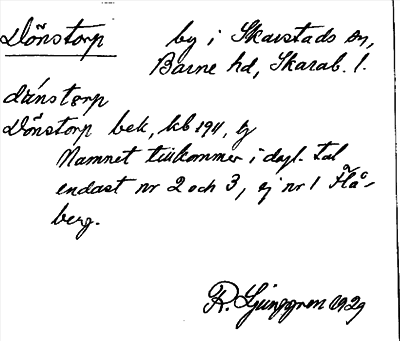 Dönstorp
by i Skarstads sn,
Barne hd, Skarab. l.
dünstərp
Dönstorp bek, kb 1911, by
Namnet tillkommer i dagl. tal
endast nr 2 och 3, ej nr 1 Flå-
berg.
R. Ljunggren 1929